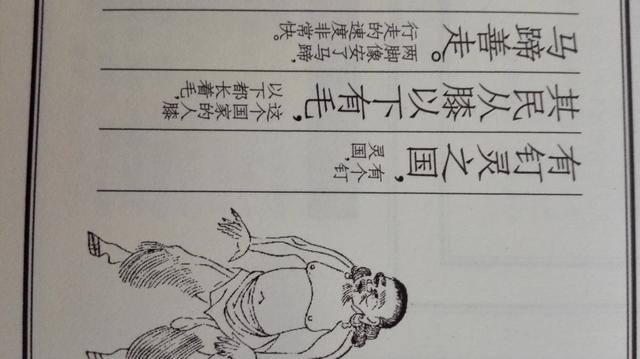 有钉灵之国，
有个钉
灵国，
其民从膝以下有毛，
这个国家的人膝
以下都长着毛，
马蹄善走。
两脚像安了马蹄，
行走的速度非常快。